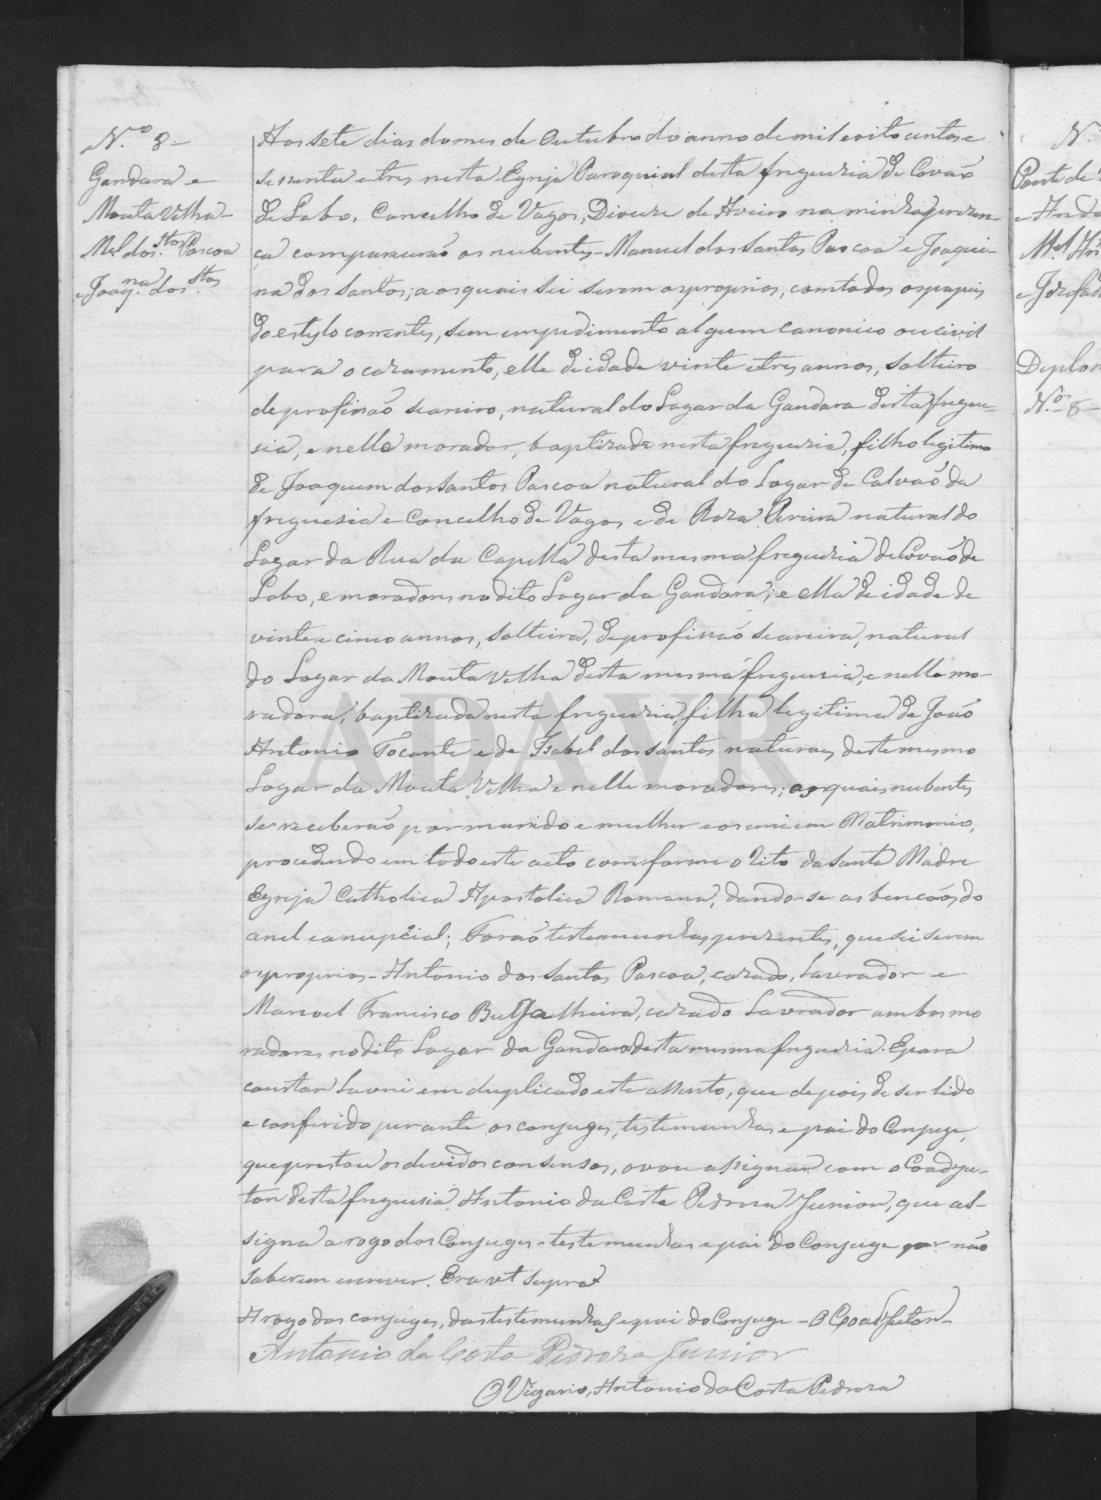 N.º 8-
Gandara e
Mouta Velha-
Mel dos S.tos Pascoa
e Joaq.na dos S.tos
Aos sete dias do mes de Outubro do anno de mil e oito centos e
sessenta e tres nesta Egreja Paroquial desta freguezia de Covaõ
de Lobo, Concelho de Vagos, Dioceze de Aveiro na minha prezen-
ça compareceraõ os nubentes - Manuel dos Santos Pascoa e Joaqui-
na dos Santos; aos quais sei serem os proprios, com todos os papeis
do estylo correntes, sem empedimento algum canonico ou civil
para o cazamento, elle de idade vinte e tres annos, solteiro
de profissaõ seareiro, natural do Logar da Gandara desta fregue-
sia, e nelle morador, baptizado nesta freguezia, filho legitimo
de Joaquim dos Santos Pascoa natural do Logar de Calvaõ da
freguesia e Concelho de Vagos, e de Roza Pereira natural do
Logar da Rua da Capella desta mesma freguezia de Covaõ de
Lobo, e moradores no dito Logar da Gandara; e ella de idade de
vinte e cinco annos, solteira, de profissaõ seareira, natural
do Logar da Mouta Velha desta mesma freguezia, e nelle mo-
radora, baptizada nesta freguezia, filha legitima de Joaõ
Antonio Tocante e de Isabel dos Santos naturaes deste mesmo
Logar da Mouta Velha e nelle moradores; os quais nubentes
se receberaõ por marido e mulher e os uni em Matrimonio,
procedendo em todo este acto comforme o Rito da Santa Madre
Egreja Catholica Apostolica Romana, dando-se as bencoõs do
anel e a nupcial; Foraõ testemunhas prezentes, que sei serem
os proprios - Antonio dos Santos Pascoa, cazado, Lavrador e
Manoel Francisco Bugalheira, cazado Lavrador ambos mo
radores no dito Logar da Gandara desta mesma freguezia. E para
constar Lavrei em duplicado este assento, que depois de ser lido
e conferido perante os conjuges, testemunhas e pai do Conjuge,
que prestou os devidos consensos, o vou assignar com o Coadju-
tor desta freguesia, Antonio da Costa Pedroza Junior, que as-
signa a rogo dos Conjuges - testemunhas e pai do Conjuge por naõ
saberem escrever. Era ut supra
A rogo dos conjuges, das testemunhas e pai do Conjuge - O Coadjutor-
Antonio da Costa Pedroza Junior
O Vigario, Antonio da Costa Pedroza
ADAVR
N.
Ponte de
Deplom
N.os 8-